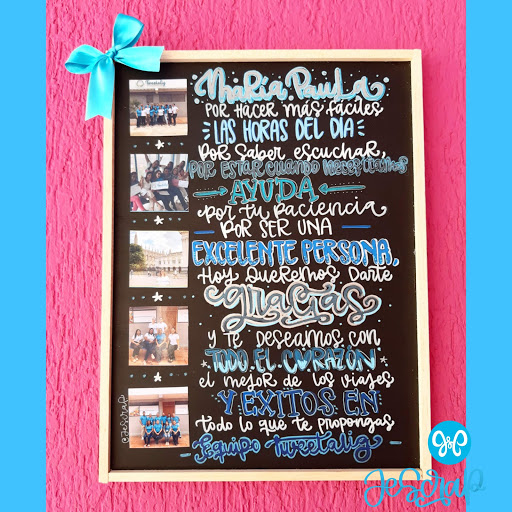 María Paula
Por hacer más fáciles
LAS HORAS DEL DÍA
Por saber escuchar,
POR ESTAR CUANDO NECESITAMOS
AYUDA
por tu paciencia
POR SER UNA
EXCELENTE PERSONA,
Hoy queremos darte
gracias
y te deseamos con
TODO EL CORAZÓN
el mejor de los viajes
Y EXITOS EN
todo lo que te propongas
Equipo Tweetalig
@Jescrap
JeScrap